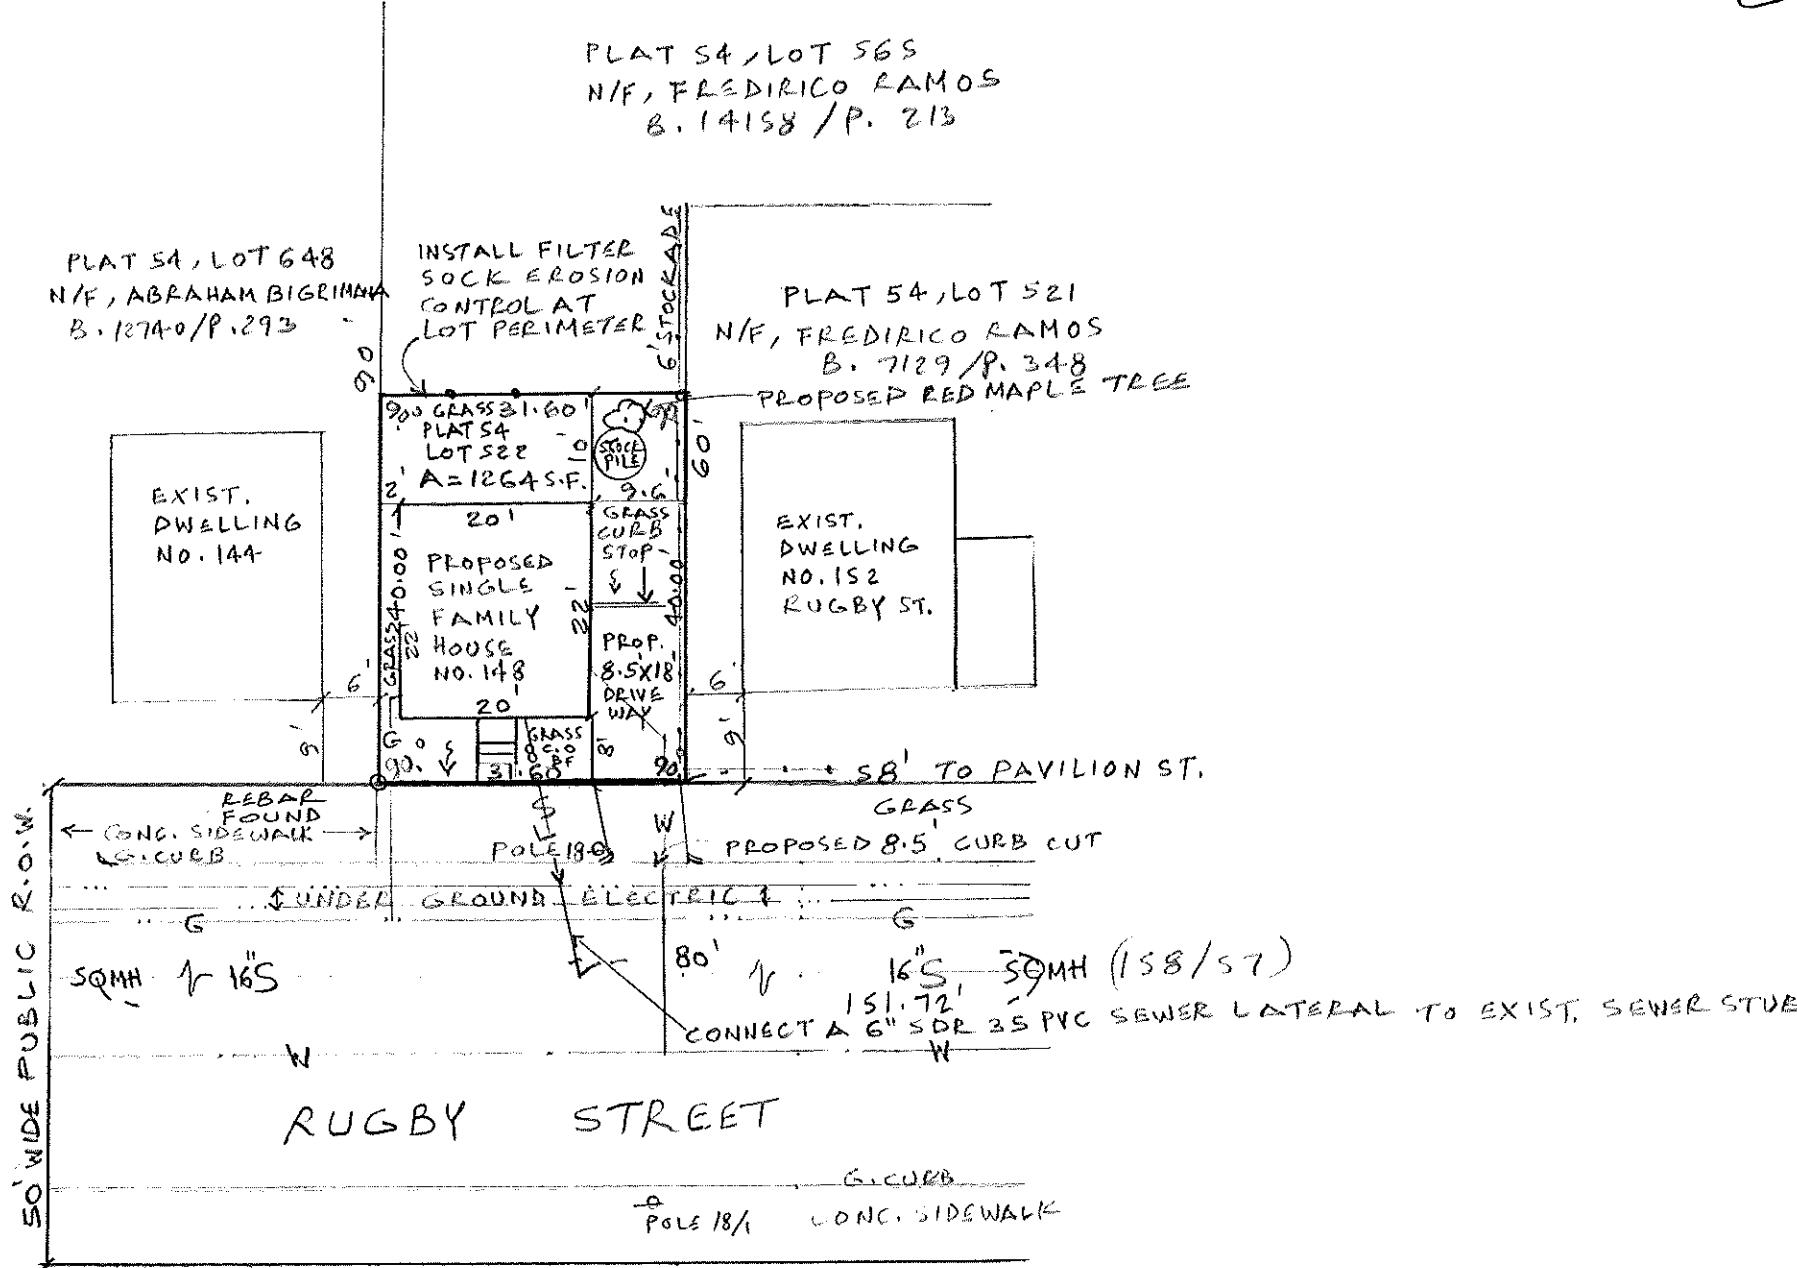 PLAT 54, LOT 565
N/F, FREDIRICO RAMOS
B. 14158 / P. 213
PLAT 54, LOT 648
N/F, ABRAHAM BIGRIMANA
B. 12740/P. 293
INSTALL FILTER
SOCK EROSION
CONTROL AT
LOT PERIMETER
6' STOCKADE
PLAT 54, LOT 521
N/F, FREDIRICO RAMOS
B. 7129 /P. 348
PROPOSED RED MAPLE TREE
90
90° GRASS 31.60'
PLAT 54
LOT 522
A = 1264 S.F.
10
STOCK
PILE
60'
2'
9.6'
EXIST.
DWELLING
NO. 144
20'
GRASS
CURB
STOP
S
40.00'
PROPOSED
SINGLE
FAMILY
HOUSE
NO. 148
22'
22'
GRASS
40.00
PROP.
8.5X18'
DRIVE
WAY
EXIST.
DWELLING
NO. 152
RUGBY ST.
6'
20'
6'
9'
G
90°
S
GRASS
C.O
8'
90°
9'
31.60
58' TO PAVILION ST.
REBAR
FOUND
GRASS
CONC. SIDEWALK
G. CURB
S
W
POLE 18-0
PROPOSED 8.5' CURB CUT
UNDER GROUND ELECTRIC
G
G
SQMH 16"S
80'
16"S SQMH (158/57)
151.72'
CONNECT A 6" SDR 35 PVC SEWER LATERAL TO EXIST. SEWER STUB
W
W
RUGBY STREET
50' WIDE PUBLIC R.O.W.
G. CURB
POLE 18/1
CONC. SIDEWALK